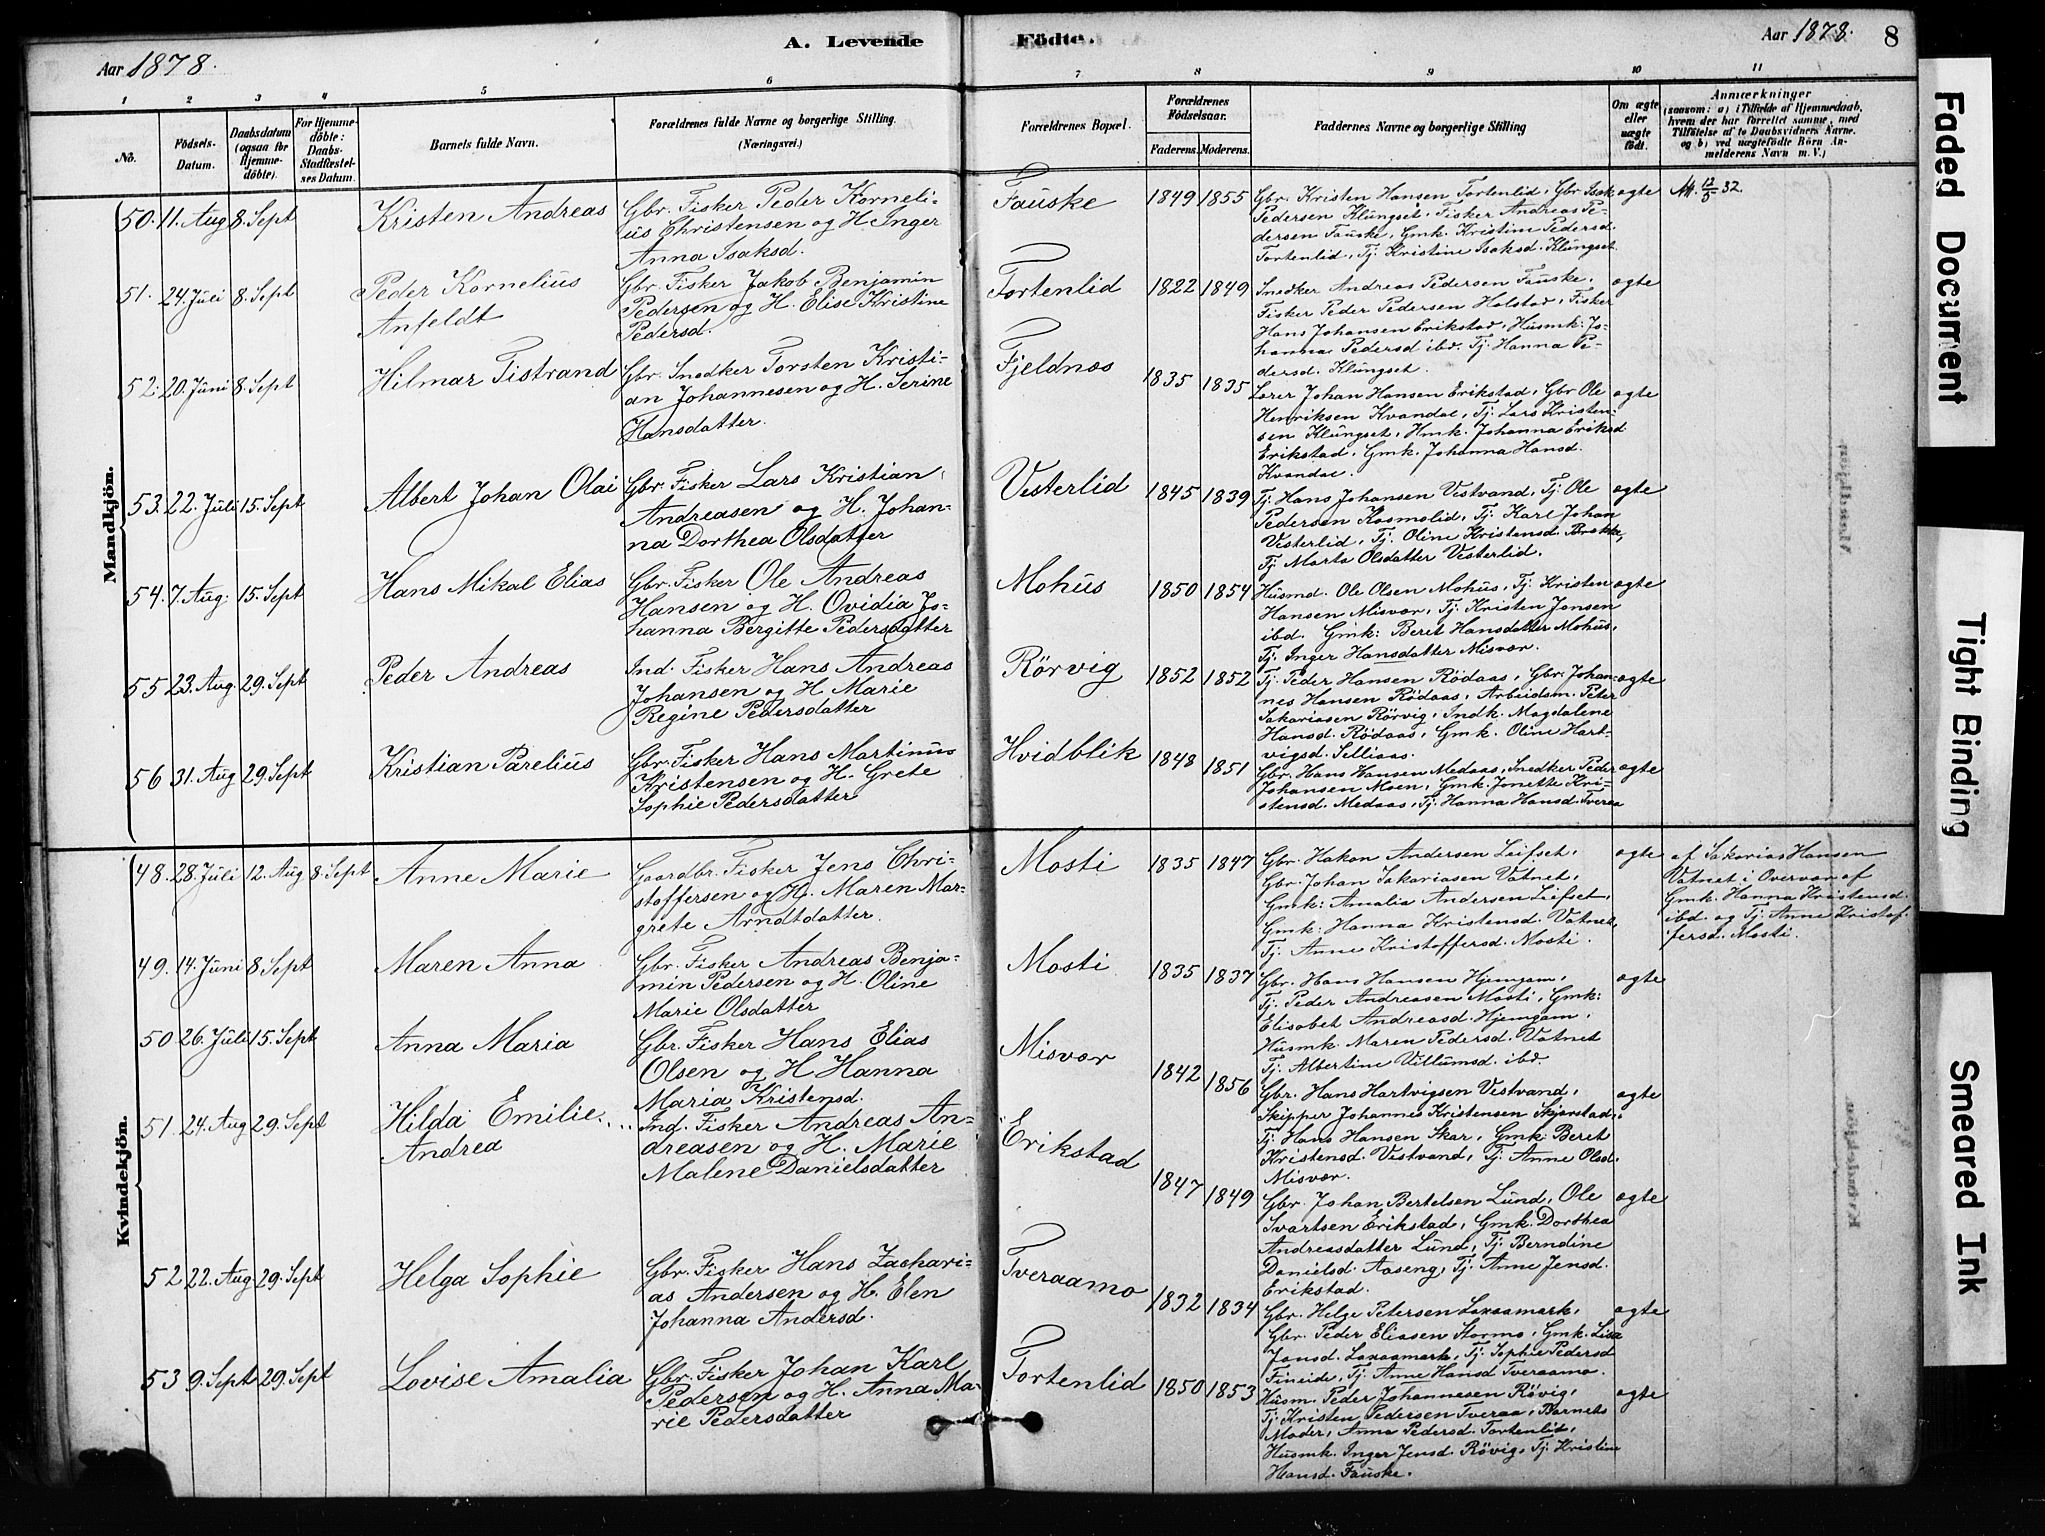 Aar 1878.
A. Levende
Födte.
Aar 1878.
8
1 2 3 4 5 6 7 8 9 10 11
No.
Födsels-Datum.
Daabsdatum (ogsaa for Hjemme-döbte).
For Hjemme-döbte: Daabs-Stadfæstel-ses Datum.
Barnets fulde Navn.
Forældrenes fulde Navne og borgerlige Stilling.
(Næringsvei.)
Forældrenes Bopæl.
Forældrenes Födselsaar.
Faderens. Moderens.
Faddernes Navne og borgerlige Stilling
Om ægte eller uægte födt.
Anmærkninger
(saasom: a) i Tilfælde af Hjemmedaab,
hvem der har forrettet samme, med
Tilföielse af to Daabsvidners Navne.
og b) ved uægtefödte Börn An-
melderens Navn m. V.)
Mandkjön.
50. 11. Aug 8. Sept Kristen Andreas
Gbr. Fisker Peder Korneli-
us Christensen og H. Inger
Anna Isaksd.
Fauske 1849 1855
Gbr. Kristen Hansen Tortenlid, Gbr Isak
Pedersen Klungset, Fisker Andreas Pe-
dersen Fauske, Gmk. Kristine Pedersd.
Tortenlid, Tj Kristine Isaksd. Klungset
ægte
Att. 12/5 32.
51. 24. Juli 8. Sept Peder Kornelius
Anfeldt
Gbr. Fisker Jakob Benjamin
Pedersen og H. Elise Kristine
Pedersd.
Tortenlid 1822 1849
Snedker Andreas Pedersen Fauske,
Fisker Peder Pedersen Holstad, Fisker
Hans Johansen Erikstad, Husmk: Jo-
hanna Pedersd ibd. Tj. Hanna Pe-
dersd. Klungset.
ægte
52. 20. Juni 8. Sept Hilmar Tistrand
Gbr. Snedker Torsten Kristi-
an Johannesen og H. Serine
Hansdatter.
Fjeldnæs 1835 1835
Lærer Johan Hansen Erikstad, Gbr Ole
Henriksen Kvandal, Tj. Lars Kristen-
sen Klungset, Hmk. Johanna Eriksd
Erikstad, Gmk. Johanna Hansd.
Kvandal.
ægte
53. 22. Juli 15. Sept Albert Johan Olai
Gbr. Fisker Lars Kristian
Andreasen og H. Johan-
na Dorthea Olsdatter
Vesterlid 1845 1839
Tj. Hans Johansen Vestvand, Tj. Ole
Pedersen Kosmolid, Tj. Karl Johan
Vesterlid, Tj. Oline Kristensd. Brække,
Tj Marta Olsdatter Vesterlid.
ægte
54. 7. Aug. 15. Sept Hans Mikal Elias
Gbr. Fisker Ole Andreas
Hansen og H. Ovidia Jo-
hanna Bergitte Pedersdatter
Mohus 1850 1854
Husmd. Ole Olsen Mohus, Tj. Kristen
Hansen Misvær, Tj. Kristen Jensen
ibd. Gmk: Beret Hansdatter Mohus,
Tj. Inger Hansdatter Misvær.
ægte
55 23. Aug. 29. Sept Peder Andreas
Ind. Fisker Hans Andreas
Johansen og H. Marie
Regine Pedersdatter
Rörvig 1852 1852
Tj. Peder Hansen Rödaas, Gbr. Johan-
nes Hansen Rödaas, Arbeidsm. Peter
Sakariasen Rörvig, Indk. Magdalene
Hansd. Rödaas, Gmk. Oline Hart-
vigsd. Selliaas.
ægte
56 31. Aug 29. Sept Kristian Parelius
Gbr. Fisker Hans Martinus
Kristensen og H. Grete
Sophie Pedersdatter
Hvidblik 1848 1851
Gbr. Hans Hansen Medaas, Snedker Peder
Johansen Moen, Gmk. Jonette Kri-
stensd. Medaas, Tj. Hanna Hansd. Tveraa
ægte
Kvindekjön.
48. 28. Juli 12. Aug 8. Sept Anne Marie
Gaardbr. Fisker Jens Chri-
stoffersen og H. Maren Mar-
grete Arndtdatter.
Mosti 1835 1847
Gbr. Hakon Andersen Leifset,
Gbr. Johan Sakariasen Vatnet,
Gmk: Amalia Andersen Leifset,
Gmk: Hanna Kristensd. Vatnet,
Tj. Anne Kristoffersd. Mosti.
ægte
af Sakarias Hansen
Vatnet i Overvær af
Gmk. Hanna Kristensd.
ibd. og Tj. Anne Kristof-
fersd. Mosti.
49. 14. Juni 8 Sept Maren Anna
Gbr. Fisker Andreas Benja-
min Pedersen og H. Oline
Marie Olsdatter
Mosti 1835 1837
Gbr. Hans Hansen Hjemgam,
Tj. Peder Andreasen Mosti, Gmk:
Elisabet Andreasd. Hjemgam,
Husmk. Maren Pedersd. Vatnet
Tj. Albertine Villumsd. ibd.
ægte
50 26. Juli 15. Sept Anna Maria
Gbr. Fisker Hans Elias
Olsen og H Hanna
Maria Kristensd.
Misvær 1842 1856
Gbr. Hans Hartvigsen Vestvand,
Skipper Johannes Kristensen Skjerstad,
Tj. Hans Hansen Skar, Gmk: Beret
Kristensd. Vestvand, Tj. Anne Olsd.
Misvær.
ægte
51. 24. Aug 29. Sept Hilda Emilie
Andrea
Ind. Fisker Andreas An-
dreasen og H. Marie
Malene Danielsdatter
Erikstad 1847 1849
Gbr. Johan Bertelsen Lund, Ole
Svartsen Erikstad, Gmk. Dorthea
Andreasdatter Lund, Tj. Berndine
Danielsd. Aaseng, Tj. Anne Jensd.
Erikstad.
ægte
52 22. Aug 29. Sept Helga Sophie
Gbr. Fisker Hans Zachari-
as Andersen og H. Elen
Johanna Andersd.
Tveraamo 1832 1834
Gbr. Helge Petersen Laxaamark,
Gbr. Peder Eliasen Stormo, Gmk. Lisa
Jonsd. Laxaamark, Tj. Sophie Pedersd
Fineide, Tj. Anne Hansd Tveraamo.
ægte
53 9. Sept 29. Sept Lovise Amalia
Gbr. Fisker Johan Karl
Pedersen og H. Anna Ma-
rie Pedersdatter
Tortenlid 1850 1853
Husm. Peder Johannesen Rövig,
Tj. Kristen Pedersen Tveraa, Barnets
Moder, Anna Pedersd. Tortenlid,
Husmk. Inger Jensd. Rövig, Tj. Kristine
Hansd. Fauske.
ægte
Faded Document
Tight Binding
Smeared Ink